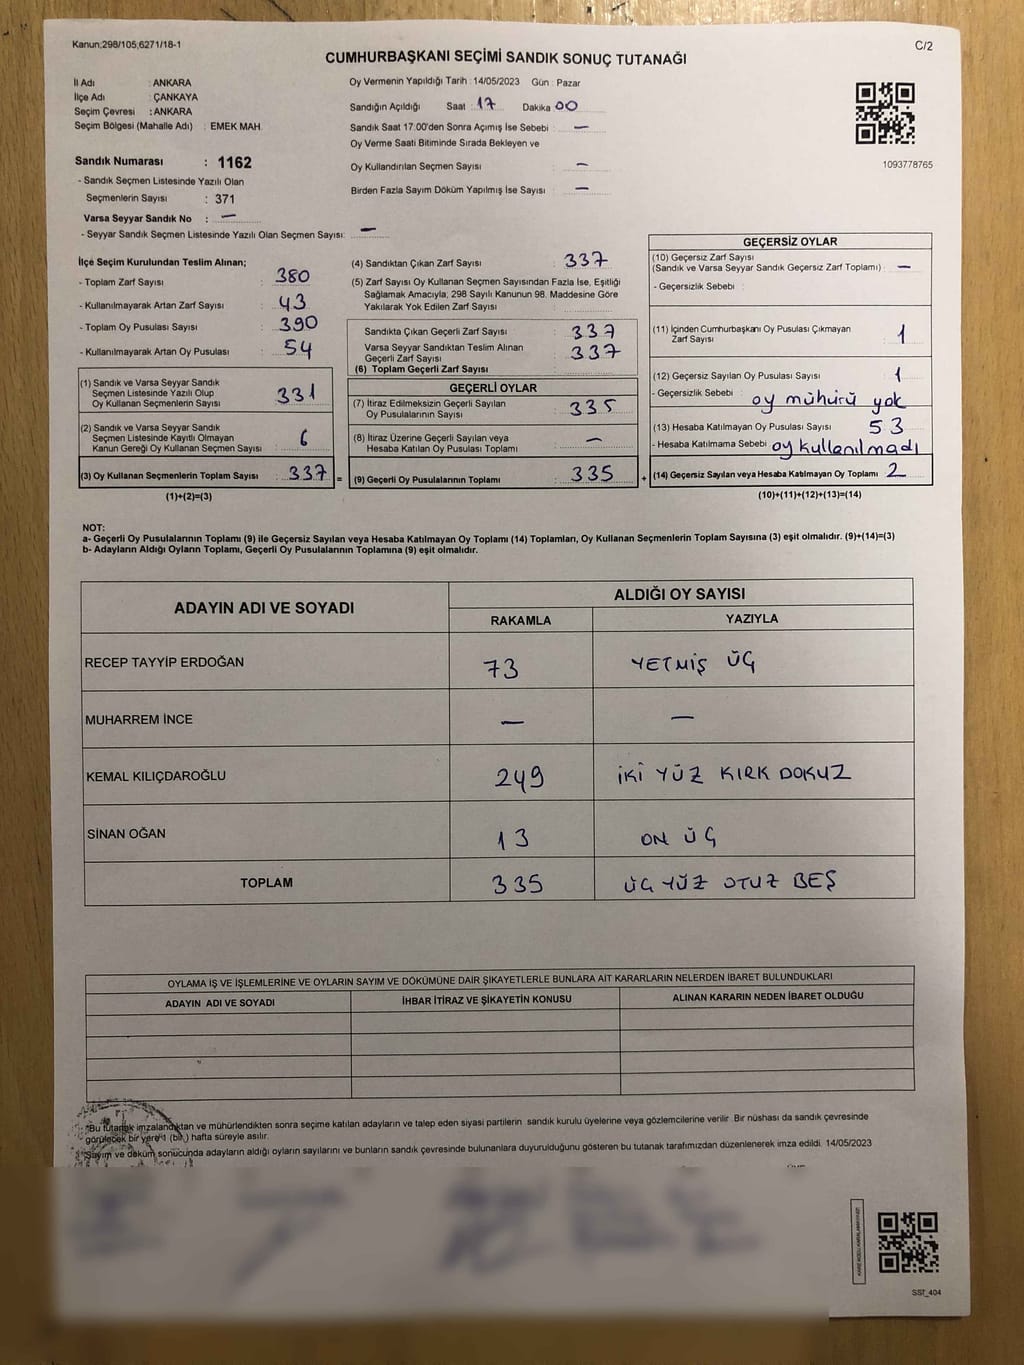 Kanun;298/105;6271/18-1
C/2
CUMHURBAŞKANI SEÇİMİ SANDIK SONUÇ TUTANAĞI
İl Adı : ANKARA
İlçe Adı : ÇANKAYA
Seçim Çevresi : ANKARA
Seçim Bölgesi (Mahalle Adı) : EMEK MAH.
Sandık Numarası : 1162
- Sandık Seçmen Listesinde Yazılı Olan
Seçmenlerin Sayısı : 371
Varsa Seyyar Sandık No : —
- Seyyar Sandık Seçmen Listesinde Yazılı Olan Seçmen Sayısı: —
Oy Vermenin Yapıldığı Tarih : 14/05/2023 Gün : Pazar
Sandığın Açıldığı Saat : 17 Dakika 00
Sandık Saat 17:00'den Sonra Açımış İse Sebebi : —
Oy Verme Saati Bitiminde Sırada Bekleyen ve
Oy Kullandırılan Seçmen Sayısı : —
Birden Fazla Sayım Döküm Yapılmış İse Sayısı : —
1093778765
İlçe Seçim Kurulundan Teslim Alınan;
- Toplam Zarf Sayısı : 380
- Kullanılmayarak Artan Zarf Sayısı : 43
- Toplam Oy Pusulası Sayısı : 390
- Kullanılmayarak Artan Oy Pusulası : 54
(1) Sandık ve Varsa Seyyar Sandık
Seçmen Listesinde Yazılı Olup
Oy Kullanan Seçmenlerin Sayısı : 331
(2) Sandık ve Varsa Seyyar Sandık
Seçmen Listesinde Kayıtlı Olmayan
Kanun Gereği Oy Kullanan Seçmen Sayısı : 6
(3) Oy Kullanan Seçmenlerin Toplam Sayısı : 337 =
(1)+(2)=(3)
(4) Sandıktan Çıkan Zarf Sayısı : 337
(5) Zarf Sayısı Oy Kullanan Seçmen Sayısından Fazla İse, Eşitliği
Sağlamak Amacıyla, 298 Sayılı Kanunun 98. Maddesine Göre
Yakılarak Yok Edilen Zarf Sayısı :
Sandıkta Çıkan Geçerli Zarf Sayısı : 337
Varsa Seyyar Sandıktan Teslim Alınan : 337
Geçerli Zarf Sayısı
(6) Toplam Geçerli Zarf Sayısı
GEÇERLİ OYLAR
(7) İtiraz Edilmeksizin Geçerli Sayılan
Oy Pusulalarının Sayısı : 335
(8) İtiraz Üzerine Geçerli Sayılan veya
Hesaba Katılan Oy Pusulası Toplamı : —
(9) Geçerli Oy Pusulalarının Toplamı : 335 +
GEÇERSİZ OYLAR
(10) Geçersiz Zarf Sayısı
(Sandık ve Varsa Seyyar Sandık Geçersiz Zarf Toplamı) : —
- Geçersizlik Sebebi :
(11) İçinden Cumhurbaşkanı Oy Pusulası Çıkmayan
Zarf Sayısı : 1
(12) Geçersiz Sayılan Oy Pusulası Sayısı : 1
- Geçersizlik Sebebi : oy mühürü yok
(13) Hesaba Katılmayan Oy Pusulası Sayısı : 53
- Hesaba Katılmama Sebebi : oy kullanılmadı
(14) Geçersiz Sayılan veya Hesaba Katılmayan Oy Toplamı 2
(10)+(11)+(12)+(13)=(14)
NOT:
a- Geçerli Oy Pusulalarının Toplamı (9) ile Geçersiz Sayılan veya Hesaba Katılmayan Oy Toplamı (14) Toplamları, Oy Kullanan Seçmenlerin Toplam Sayısına (3) eşit olmalıdır. (9)+(14)=(3)
b- Adayların Aldığı Oyların Toplamı, Geçerli Oy Pusulalarının Toplamına (9) eşit olmalıdır.
ADAYIN ADI VE SOYADI
ALDIĞI OY SAYISI
RAKAMLA YAZIYLA
RECEP TAYYİP ERDOĞAN 73 YETMİŞ ÜÇ
MUHARREM İNCE — —
KEMAL KILIÇDAROĞLU 249 İKİ YÜZ KIRK DOKUZ
SİNAN OĞAN 13 ON ÜÇ
TOPLAM 335 ÜÇ YÜZ OTUZ BEŞ
OYLAMA İŞ VE İŞLEMLERİNE VE OYLARIN SAYIM VE DÖKÜMÜNE DAİR ŞİKAYETLERLE BUNLARA AİT KARARLARIN NELERDEN İBARET BULUNDUKLARI
ADAYIN ADI VE SOYADI İHBAR İTİRAZ VE ŞİKAYETİN KONUSU ALINAN KARARIN NEDEN İBARET OLDUĞU
*Bu tutanak imzalandıktan ve mühürlendikten sonra seçime katılan adayların ve talep eden siyasi partilerin sandık kurulu üyelerine veya gözlemcilerine verilir. Bir nüshası da sandık çevresinde
görülecek bir yere 1 (bir) hafta süreyle asılır.
*Sayım ve döküm sonucunda adayların aldığı oyların sayılarını ve bunların sandık çevresinde bulunanlara duyurulduğunu gösteren bu tutanak tarafımızdan düzenlenerek imza edildi. 14/05/2023
SST_404